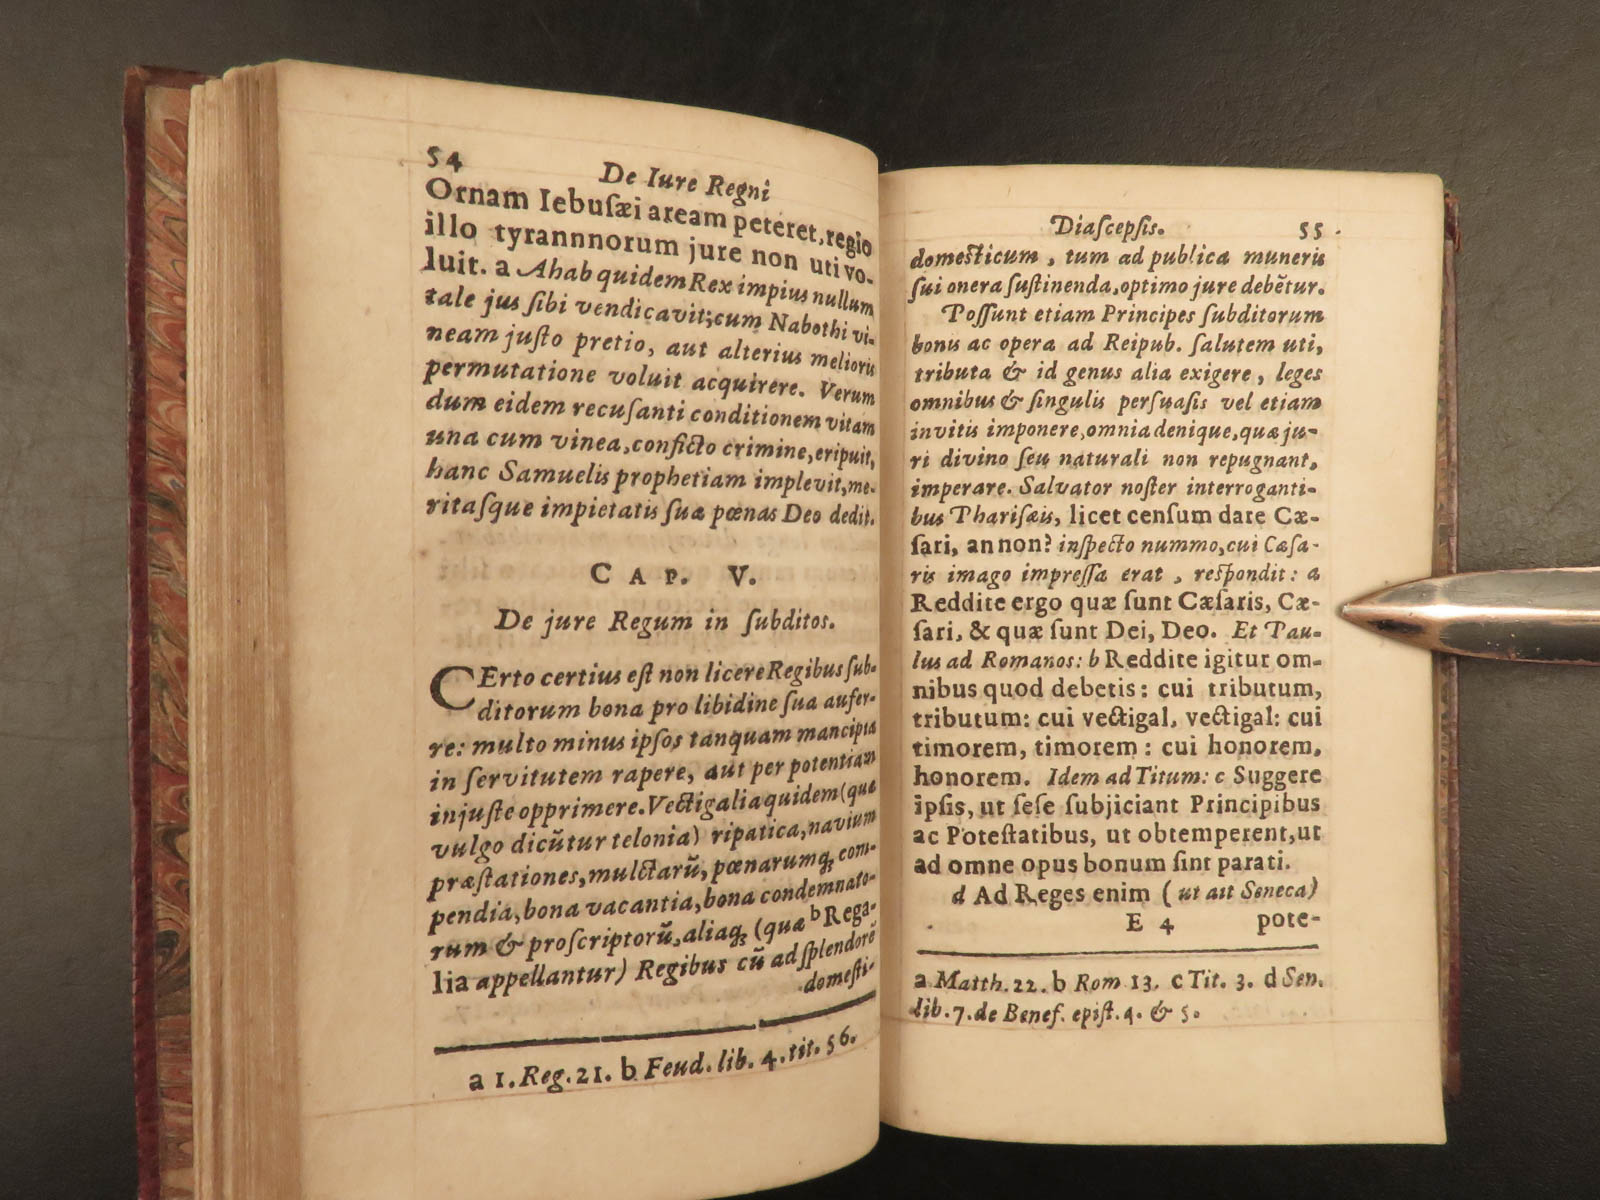 54
De Iure Regni
Ornam Iebuſæi aream peteret, regio
illo tyrannnorum jure non uti vo-
luit. a Ahab quidem Rex impius nullum
tale jus ſibi vendicavit; cum Nabothi vi-
neam juſto pretio, aut alterius melioris
permutatione voluit acquirere. Verum
dum eidem recuſanti conditionem vitam
una cum vinea, conficto crimine, eripuit,
hanc Samuelis prophetiam implevit, me-
ritaſque impietatis ſuæ pœnas Deo dedit.
CAP. V.
De jure Regum in ſubditos.
CErto certius eſt non licere Regibus ſub-
ditorum bona pro libidine ſua aufer-
re: multo minus ipſos tanquam mancipia
in ſervitutem rapere, aut per potentiam
injuſte opprimere. Vectigalia quidem (quæ
vulgo dicũtur telonia) ripatica, navium
præſtationes, mulctarũ, pœnarumq; com-
pendia, bona vacantia, bona condemnato-
rum & proſcriptorũ, aliaq; (quæ b Rega-
lia appellantur) Regibus cũ ad ſplendorẽ
domeſti-
a 1. Reg. 21. b Feud. lib. 4. tit. 56.
Diaſcepſis. 55
domeſticum, tum ad publica muneris
ſui onera ſuſtinenda, optimo jure debẽtur.
Poſſunt etiam Principes ſubditorum
bonis ac opera ad Reipub. ſalutem uti,
tributa & id genus alia exigere, leges
omnibus & ſingulis perſuaſis vel etiam
invitis imponere, omnia denique, quæ ju-
ri divino ſeu naturali non repugnant,
imperare. Salvator noſter interroganti-
bus Phariſæis, licet cenſum dare Cæ-
ſari, an non? inſpecto nummo, cui Cæſa-
ris imago impreſſa erat, reſpondit: a
Reddite ergo quæ ſunt Cæſaris, Cæ-
ſari, & quæ ſunt Dei, Deo. Et Pau-
lus ad Romanos: b Reddite igitur om-
nibus quod debetis: cui tributum,
tributum: cui vectigal, vectigal: cui
timorem, timorem: cui honorem,
honorem. Idem ad Titum: c Suggere
ipſis, ut ſeſe ſubjiciant Principibus
ac Poteſtatibus, ut obtemperent, ut
ad omne opus bonum ſint parati.
d Ad Reges enim (ut ait Seneca)
E 4 pote-
a Matth. 22. b Rom 13. c Tit. 3. d Sen.
lib. 7. de Benef. epiſt. 4. & 5.